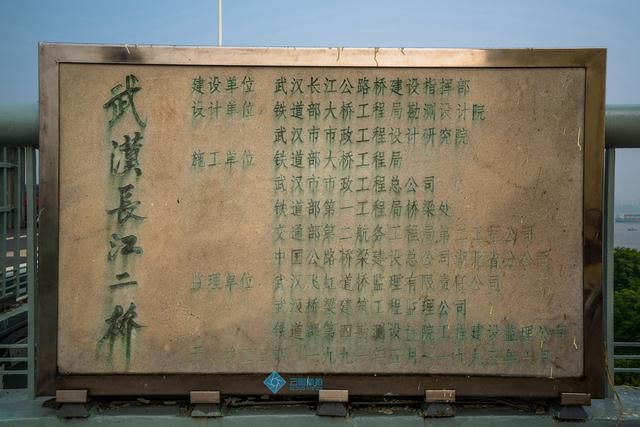 武漢長江二桥
建设单位 武汉长江公路桥建设指挥部
设计单位 铁道部大桥工程局勘测设计院
武汉市市政工程设计研究院
施工单位 铁道部大桥工程局
武汉市市政工程总公司
铁道部第一工程局桥梁处
交通部第二航务工程局第二工程公司
中国公路桥梁建设总公司湖北省分公司
监理单位 武汉飞虹道桥监理有限责任公司
武汉桥梁建筑工程监理公司
铁道部第四勘测设计院工程建设监理公司